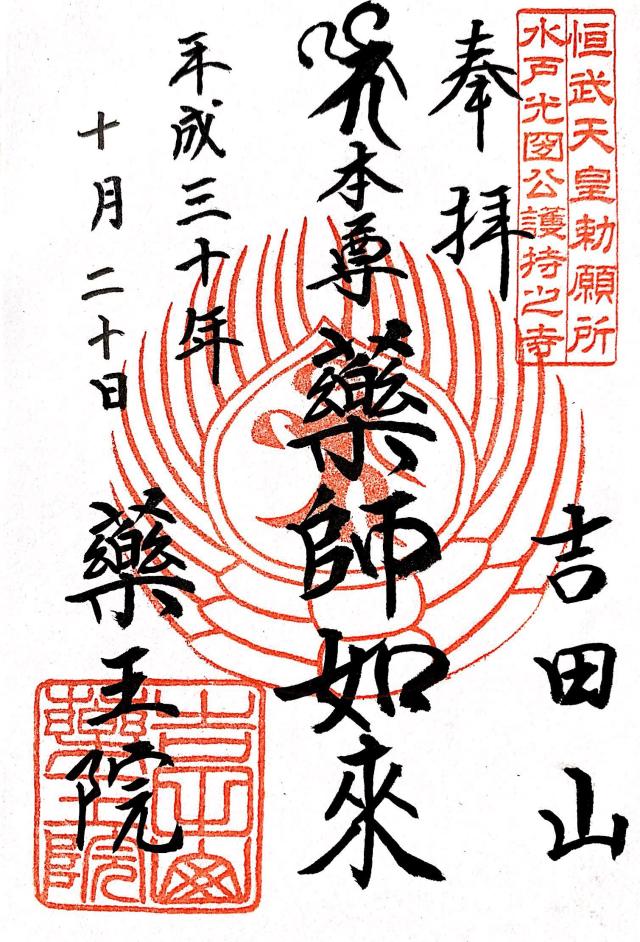 恒武天皇勅願所
水戸光圀公護持之寺
奉拝
吉田山
本尊
藥師如來
平成三十年
十月二十日
藥王院
吉田山
藥王院